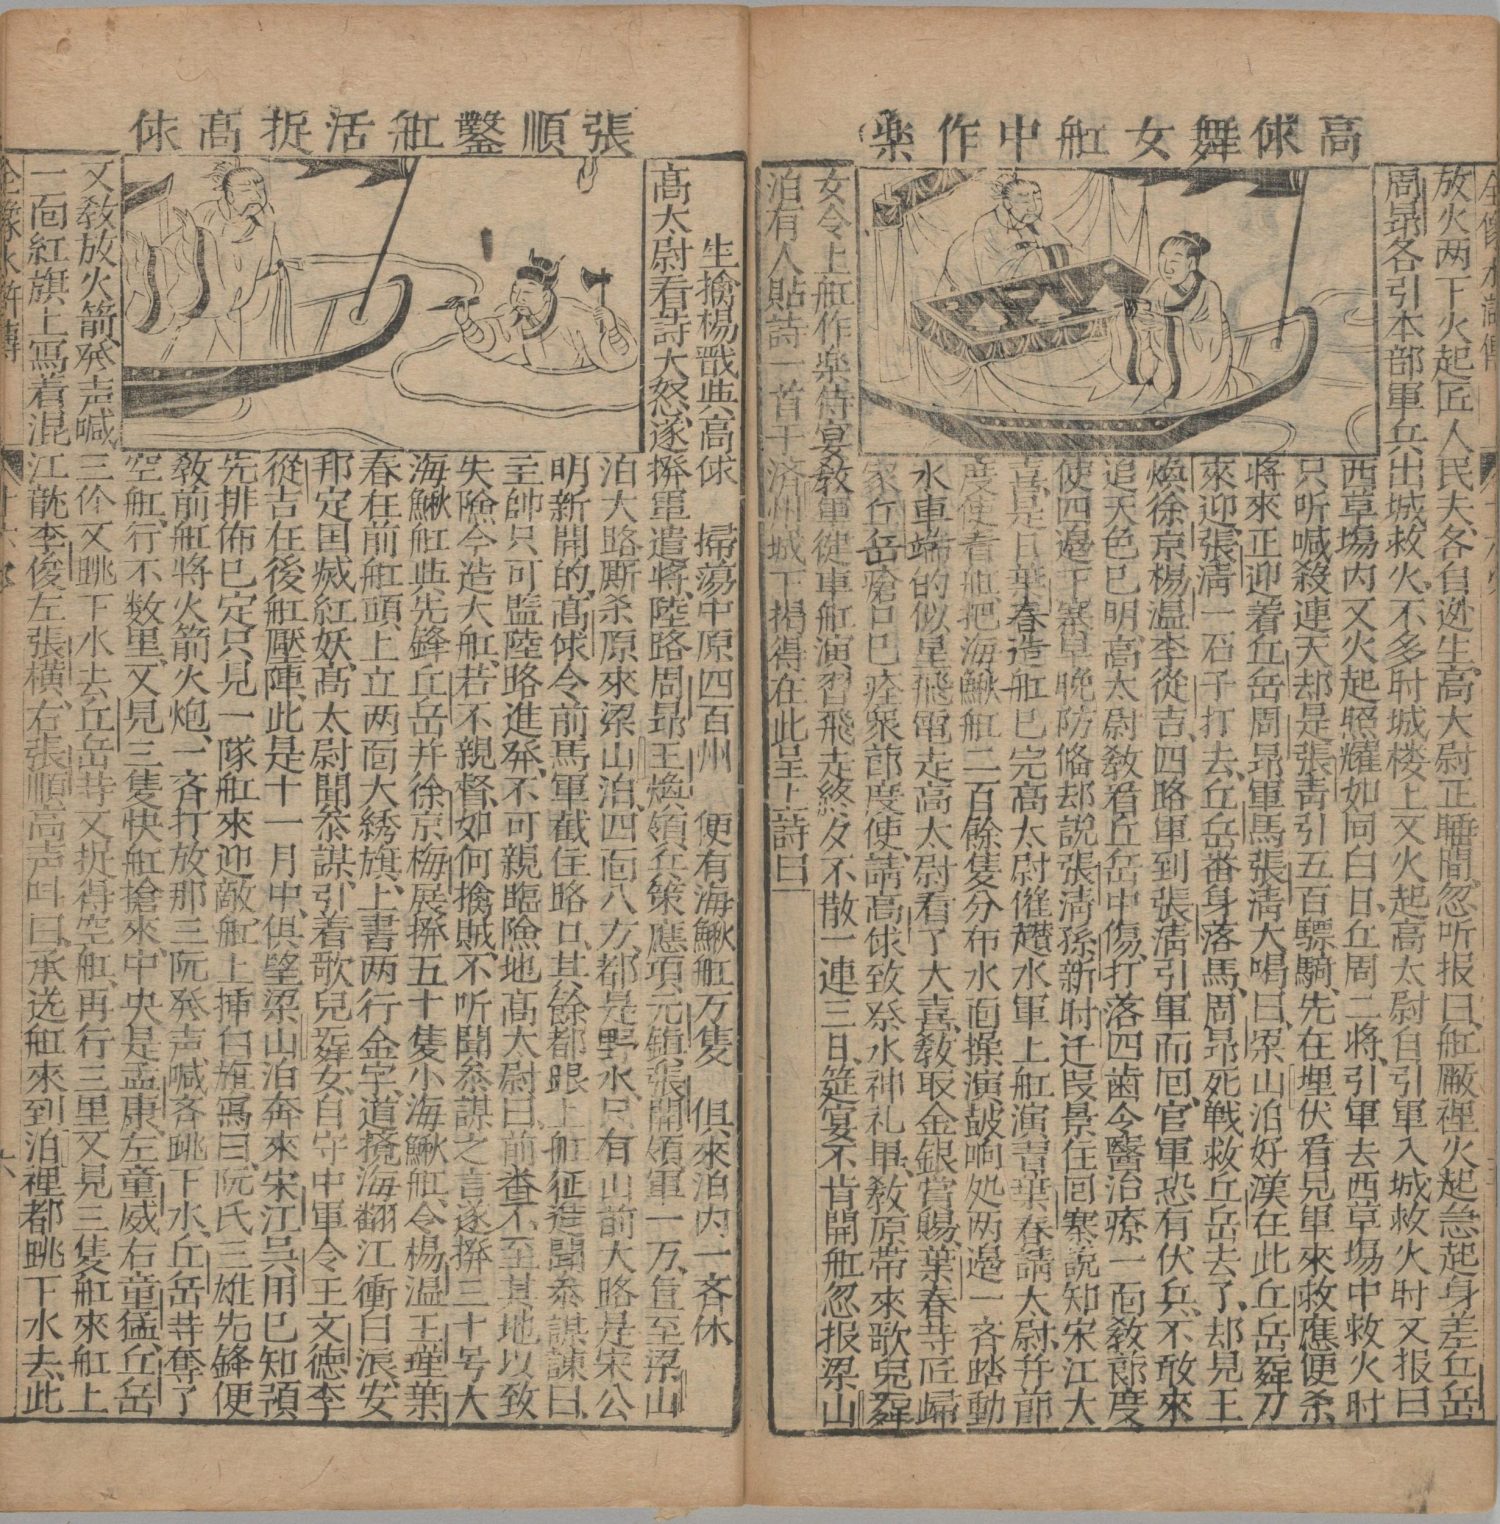 高俅舞女舡中作樂
全像水滸傳
放火两下火起匠人民夫各自逊生高大尉正睡間忽听报曰舡厰裡火起急起身差丘岳
周昴各引本部軍兵出城救火不多时城楼上又火起高太尉自引軍入城救火时又报曰
西草塲内又火起照耀如同白日丘周二将引軍去西草塲中救火时
只听喊殺連天却是張青引五百驃騎先在埋伏看見軍來救應便杀
将來正迎着丘岳周昴軍馬張清大喝曰梁山泊好漢在此丘岳舞刀
來迎張清一石子打去丘岳番身落馬周昴死戦救丘岳去了却見王
煥徐京楊温李從吉四路軍到張清引軍而回官軍恐有伏兵不敢來
追天色已明高太尉敎看丘岳中傷打落四歯令醫治療一面敎節度
使四邉下寨早晚防偹却説張清孫新时迁叚景住回寨説知宋江大
喜是日葉春造舡已完高太尉催趲水軍上舡演習葉春請太尉并節
度使看舡把海鰍舡二百餘隻分布水面操演皷响処两邉一斉踏動
水車端的似星飛電走高太尉看了大喜敎取金銀賞賜葉春等匠歸
家丘岳瘡口已痊衆節度使請高俅致祭水神礼畢敎原帶來歌兒舞
女令上舡作樂侍宴敎軍健車舡演習飛走終夕不散一連三日筵宴不肯開舡忽报梁山
泊有人貼詩一首于济州城下揭得在此呈上詩曰
張順鑿舡活捉高俅
生擒楊戩與高俅 掃蕩中原四百州 便有海鰍舡万隻 俱來泊内一斉休
高太尉看詩大怒遂撥軍遣將陸路周昴王煥領兵策應項元鎮張開領軍一万直至梁山
泊大路厮杀原來梁山泊四面八方都是野水只有山前大路是宋公
明新開的高俅令前馬軍截住路口其餘都跟上舡征進聞叅謀諫曰
主帥只可監陸路進発不可親臨險地高大尉曰前畨不至其地以致
失險今造大舡若不親督如何擒賊不听聞叅謀之言遂撥三十号大
海鰍舡與先鋒丘岳并徐京梅展撥五十隻小海鰍舡令楊温王瑾葉
春在前舡頭上立两面大綉旗上書两行金字道攪海翻江衝白浪安
邦定国㓕紅妖高太尉聞叅謀引着歌兒舞女自守中軍令王文徳李
從吉在後舡壓陣此是十一月中俱望梁山泊奔來宋江吳用已知預
先排佈已定只見一隊舡來迎敵舡上揷白旗寫曰阮氏三雄先鋒便
敎前舡將火箭火炮一斉打放那三阮発声喊斉跳下水丘岳等奪了
空舡行不数里又見三隻快舡搶來中央是孟康左童威右童猛丘岳
又敎放火箭発声喊三伱又跳下水去丘岳等又捉得空舡再行三里又見三隻舡來舡上
一面紅旗上寫着混江龍李俊左張横右張順高声叫曰承送舡來到泊裡都跳下水去此
全像水滸傳